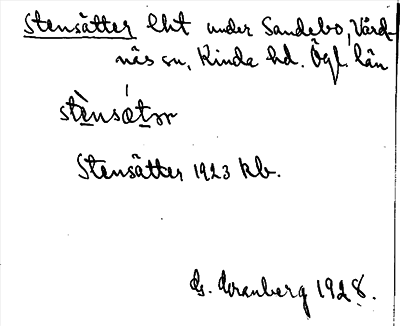 Stensätter lht under Sandebo, Vård-
näs sn, Kinda hd. Ögl. län
stènsétər
Stensätter 1923 kb.
G. Granberg 1928.